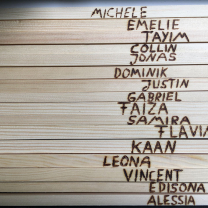 MICHELE
EMELIE
TAYIM
COLLIN
JONAS
DOMINIK
JUSTIN
GABRIEL
FAIZA
SAMIRA
FLAVIA
KAAN
LEONA
VINCENT
EDISONA
ALESSIA